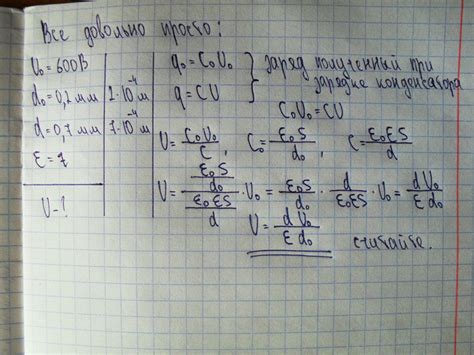 Все довольно просто:
U₀ = 600В
d₀ = 0,1 мм | 1·10⁻⁴ м
d = 0,7 мм | 7·10⁻⁴ м
ε = 7
U - ?
q₀ = C₀U₀
q = CU
} заряд полученный при
зарядке конденсатора
C₀U₀ = CU
U = C₀U₀/C, C₀ = ε₀S/d₀, C = ε₀εS/d
U = (ε₀S/d₀)/(ε₀εS/d) · U₀ = ε₀S/d₀ · d/ε₀εS · U₀ = dU₀/εd₀
U = dU₀/εd₀
считайте.